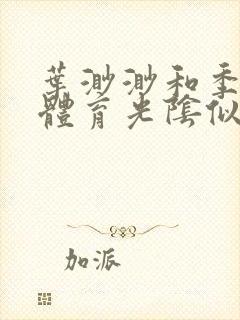 葉渺渺和季
體育光陰似
加派